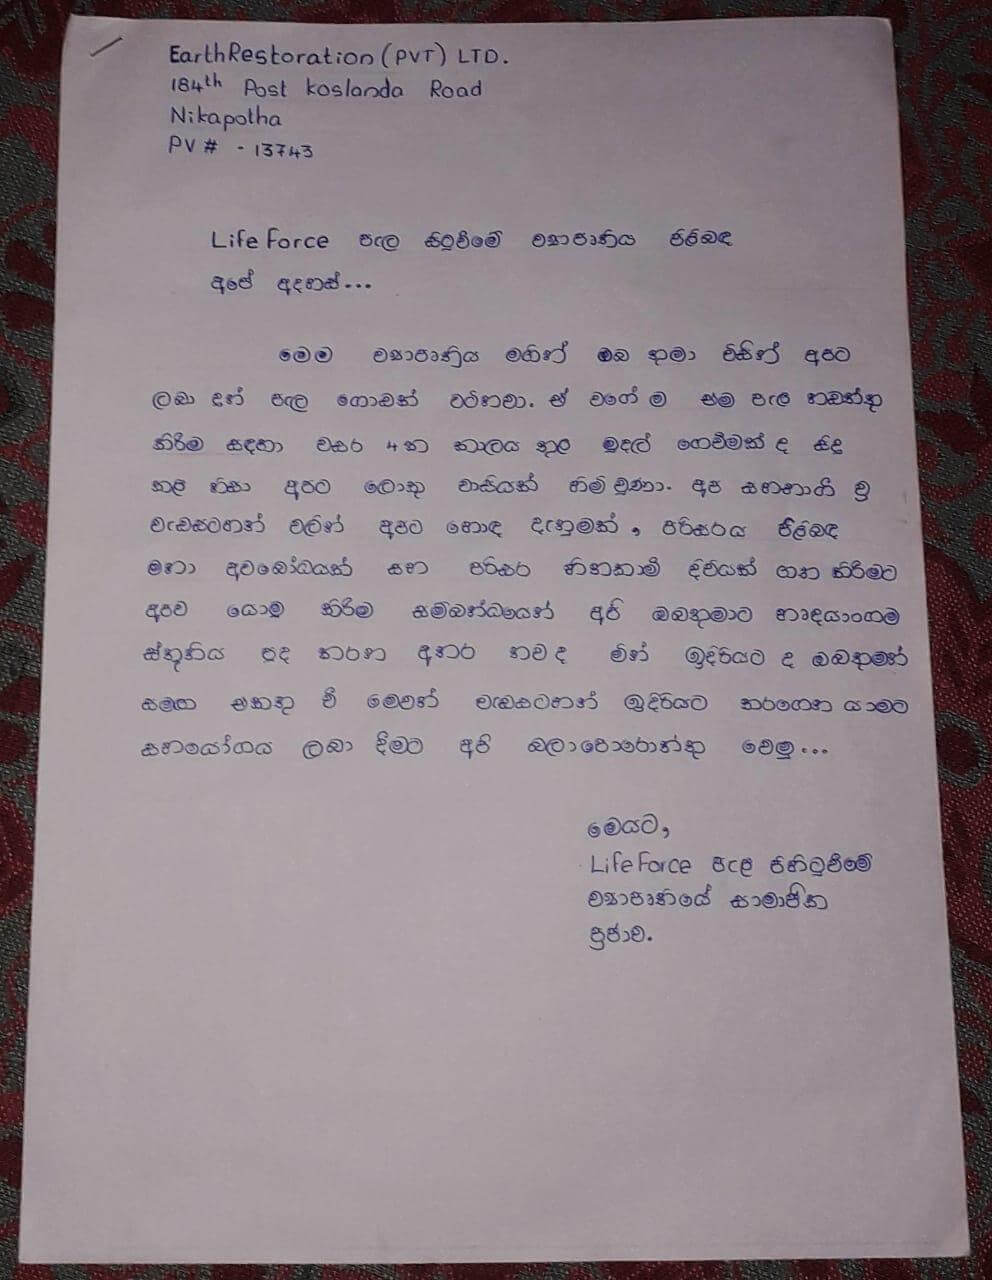 EarthRestoration (PVT) LTD.
184th Post Koslanda Road
Nikapotha
PV # - 13743
Life Force පැල සිටුවීමේ ව්‍යාපෘතිය පිළිබඳ
අපේ අදහස්...
මෙම ව්‍යාපෘතිය මගින් ඔබ තුමා විසින් අපට
ලබා දුන් පැල ගොඩක් වටිනවා. ඒ වගේ ම එම පැල නඩත්තු
කිරීම සඳහා වසර 4ක කාලය තුල මුදල් ගෙවීමක් ද සිදු
කල නිසා අපට ලොකු වාසියක් හිමි වුණා. අප සහභාගි වු
වැඩසටහන් වලින් අපට හොඳ දැනුමක්, පරිසරය පිළිබඳ
මනා අවබෝධයක් සහ පරිසර හිතකාමී දිවියක් ගත කිරීමට
අපව යොමු කිරීම සම්බන්ධයෙන් අපි ඔබතුමාට හෘදයාංගම
ස්තූතිය පුද කරන අතර තව ද මින් ඉදිරියට ද ඔබතුමන්
සමඟ එකතු වී මෙවන් වැඩසටහන් ඉදිරියට කරගෙන යාමට
සහයෝගය ලබා දීමට අපි බලාපොරොත්තු වෙමු...
මෙයට,
Life Force පැල සිටුවීමේ
ව්‍යාපෘතියේ සාමාජික
ප්‍රජාව.